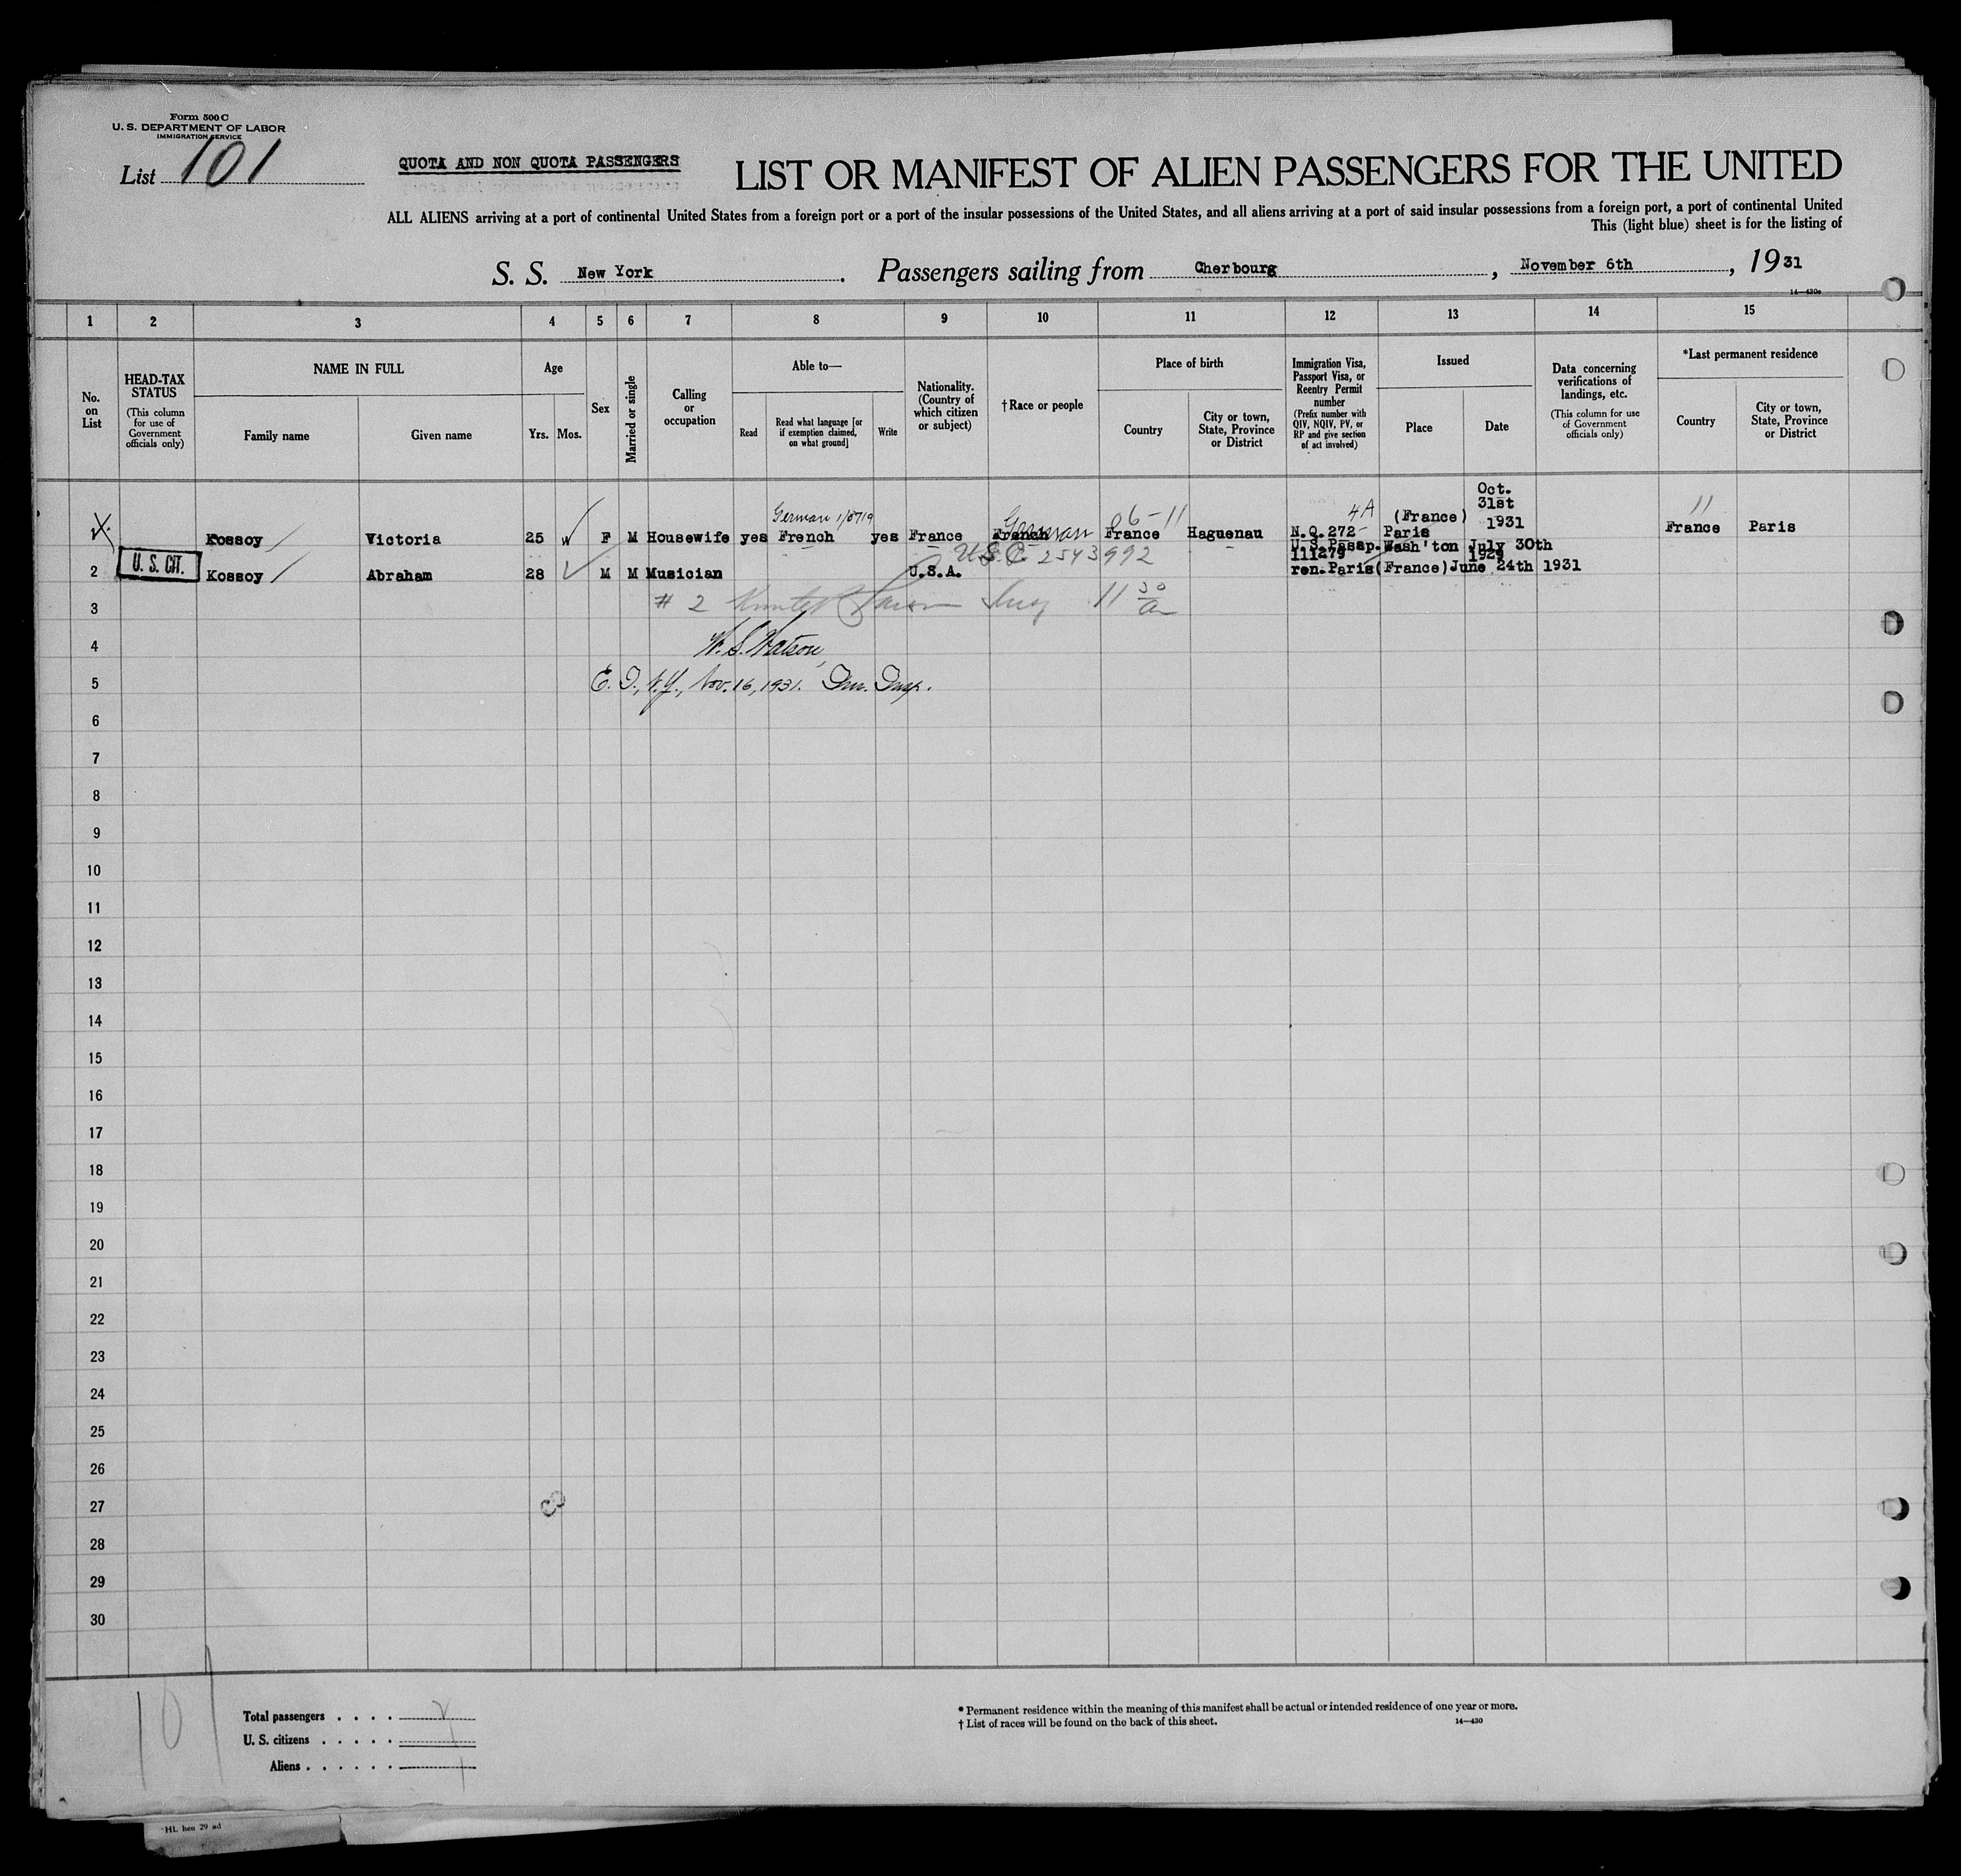 Form 500 C
U. S. DEPARTMENT OF LABOR
IMMIGRATION SERVICE
List 101
QUOTA AND NON QUOTA PASSENGERS
LIST OR MANIFEST OF ALIEN PASSENGERS FOR THE UNITED
ALL ALIENS arriving at a port of continental United States from a foreign port or a port of the insular possessions of the United States, and all aliens arriving at a port of said insular possessions from a foreign port, a port of continental United
This (light blue) sheet is for the listing of
S. S. New York. Passengers sailing from Cherbourg, November 6th, 1931
14—430c
1 2 3 4 5 6 7 8 9 10 11 12 13 14 15
No. on List
HEAD-TAX STATUS (This column for use of Government officials only)
NAME IN FULL
Family name
Given name
Age
Yrs. Mos.
Sex
Married or single
Calling or occupation
Able to—
Read
Read what language [or if exemption claimed, on what ground]
Write
Nationality. (Country of which citizen or subject)
†Race or people
Place of birth
Country
City or town, State, Province or District
Immigration Visa, Passport Visa, or Reentry Permit number (Prefix number with QIV, NQIV, PV, or RP and give section of act involved)
Issued
Place
Date
Data concerning verifications of landings, etc. (This column for use of Government officials only)
*Last permanent residence
Country
City or town, State, Province or District
German 1/8719 German 06-11 4A (France) Oct. 31st 1931 11
Kossoy Victoria 25 F M Housewife yes French yes France French France Haguenau N.Q.272 Paris France Paris
U. S. CIT.
U.S.C. 2543992
U.S.Passp. Wash'ton July 30th
111279 1929
2 Kossoy Abraham 28 M M Musician U.S.A. ren.Paris(France)June 24th 1931
3 # 2 11 30
4 W. S. Watson,
5 E. I., N.Y., Nov. 16, 1931. Imm. Insp.
6
7
8
9
10
11
12
13
14
15
16
17
18
19
20
21
22
23
24
25
26
27
28
29
30
101
Total passengers . . . .
U. S. citizens . . . . .
Aliens . . . . . .
* Permanent residence within the meaning of this manifest shall be actual or intended residence of one year or more.
† List of races will be found on the back of this sheet.
14—430